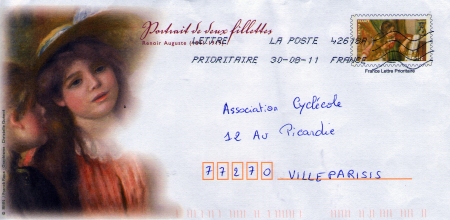 Portrait de deux fillettes
Renoir Auguste
LETTRE LA POSTE 42676A
PRIORITAIRE 30-08-11 FRANCE
France Lettre Prioritaire
Association Cyclécole
12 Av Picardie
77270 VILLEPARISIS